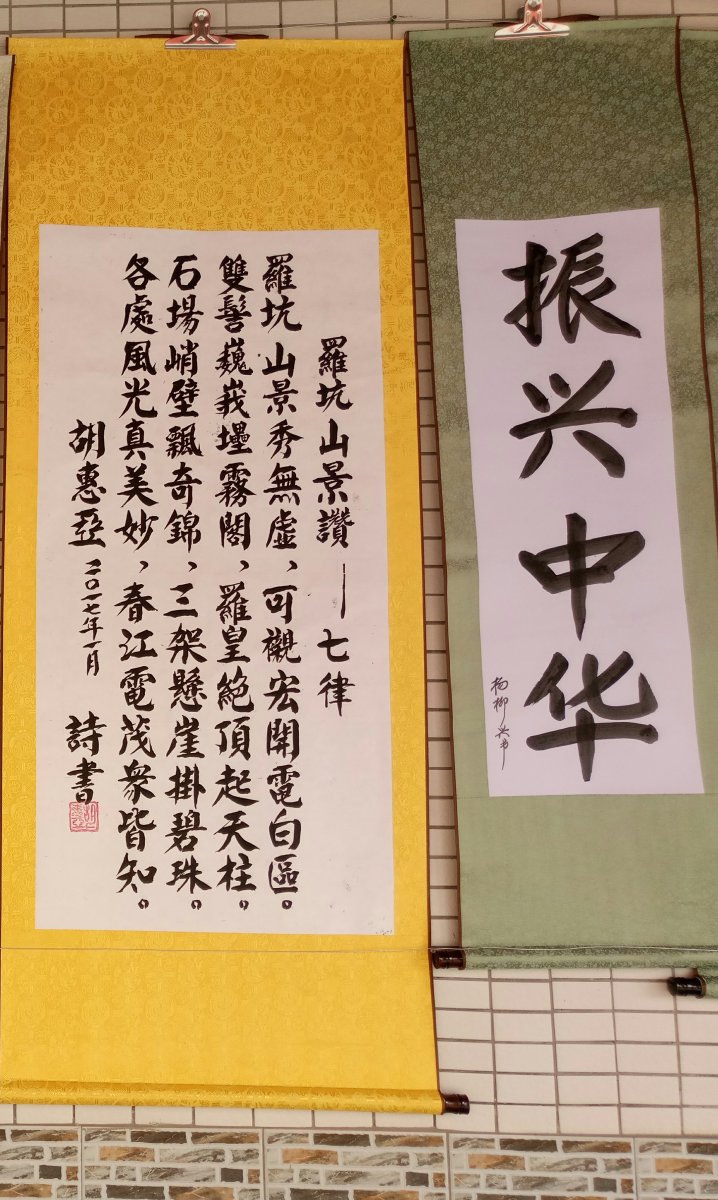 振兴中华
杨柳兴书
羅坑山景讚——七律
羅坑山景秀無虛，可觀宏開電白區。
雙髻巍峩壘霧閣，羅皇絕頂起天柱。
石場峭壁飄奇錦，三架懸崖掛碧珠。
各處風光真美妙，春江電茂衆皆知。
胡惠亞 二〇一七年一月 詩書